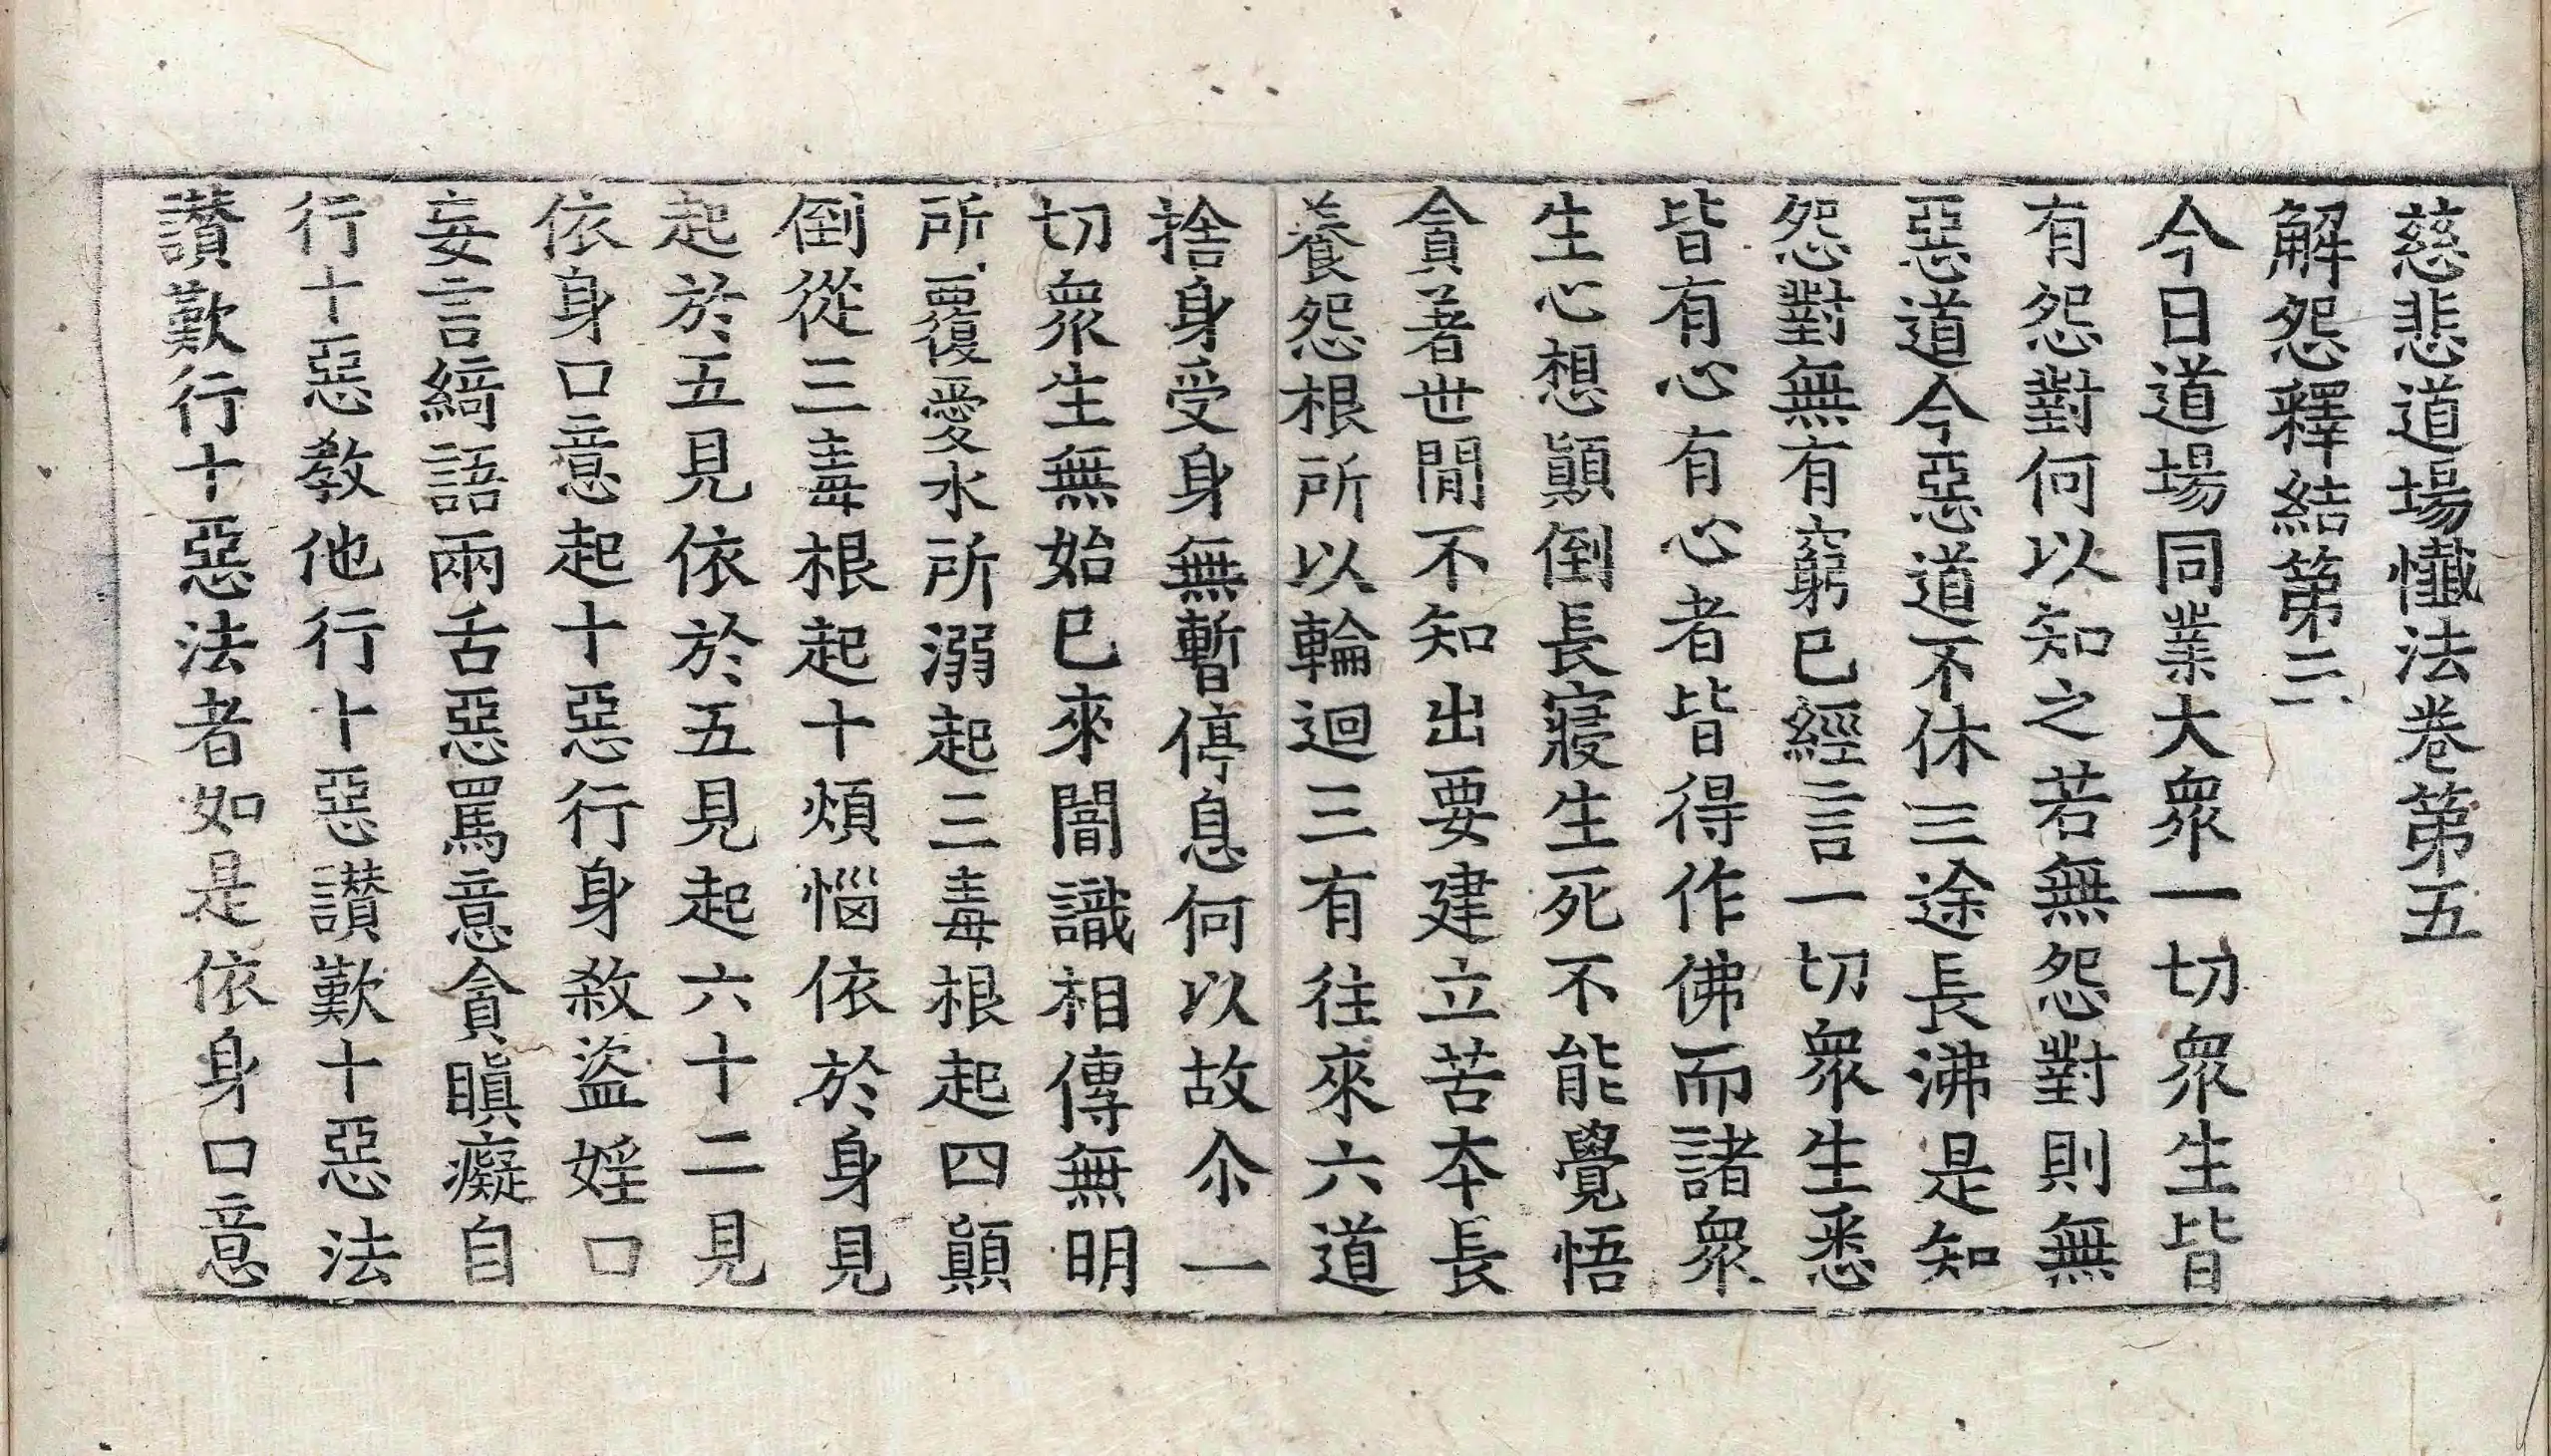 慈悲道場懺法卷第五
解怨釋結第三
今日道場同業大衆一切衆生皆
有怨對何以知之若無怨對則無
惡道今惡道不休三途長沸是知
怨對無有窮已經言一切衆生悉
皆有心有心者皆得作佛而諸衆
生心想顚倒長寢生死不能覺悟
貪著世閒不知出要建立苦本長
養怨根所以輪迴三有往來六道
捨身受身無暫停息何以故尒一
切衆生無始已來闇識相傳無明
所覆愛水所溺起三毒根起四顚
倒從三毒根起十煩惱依於身見
起於五見依於五見起六十二見
依身口意起十惡行身殺盜婬口
妄言綺語兩舌惡罵意貪瞋癡自
行十惡教他行十惡讃歎十惡法
讃歎行十惡法者如是依身口意